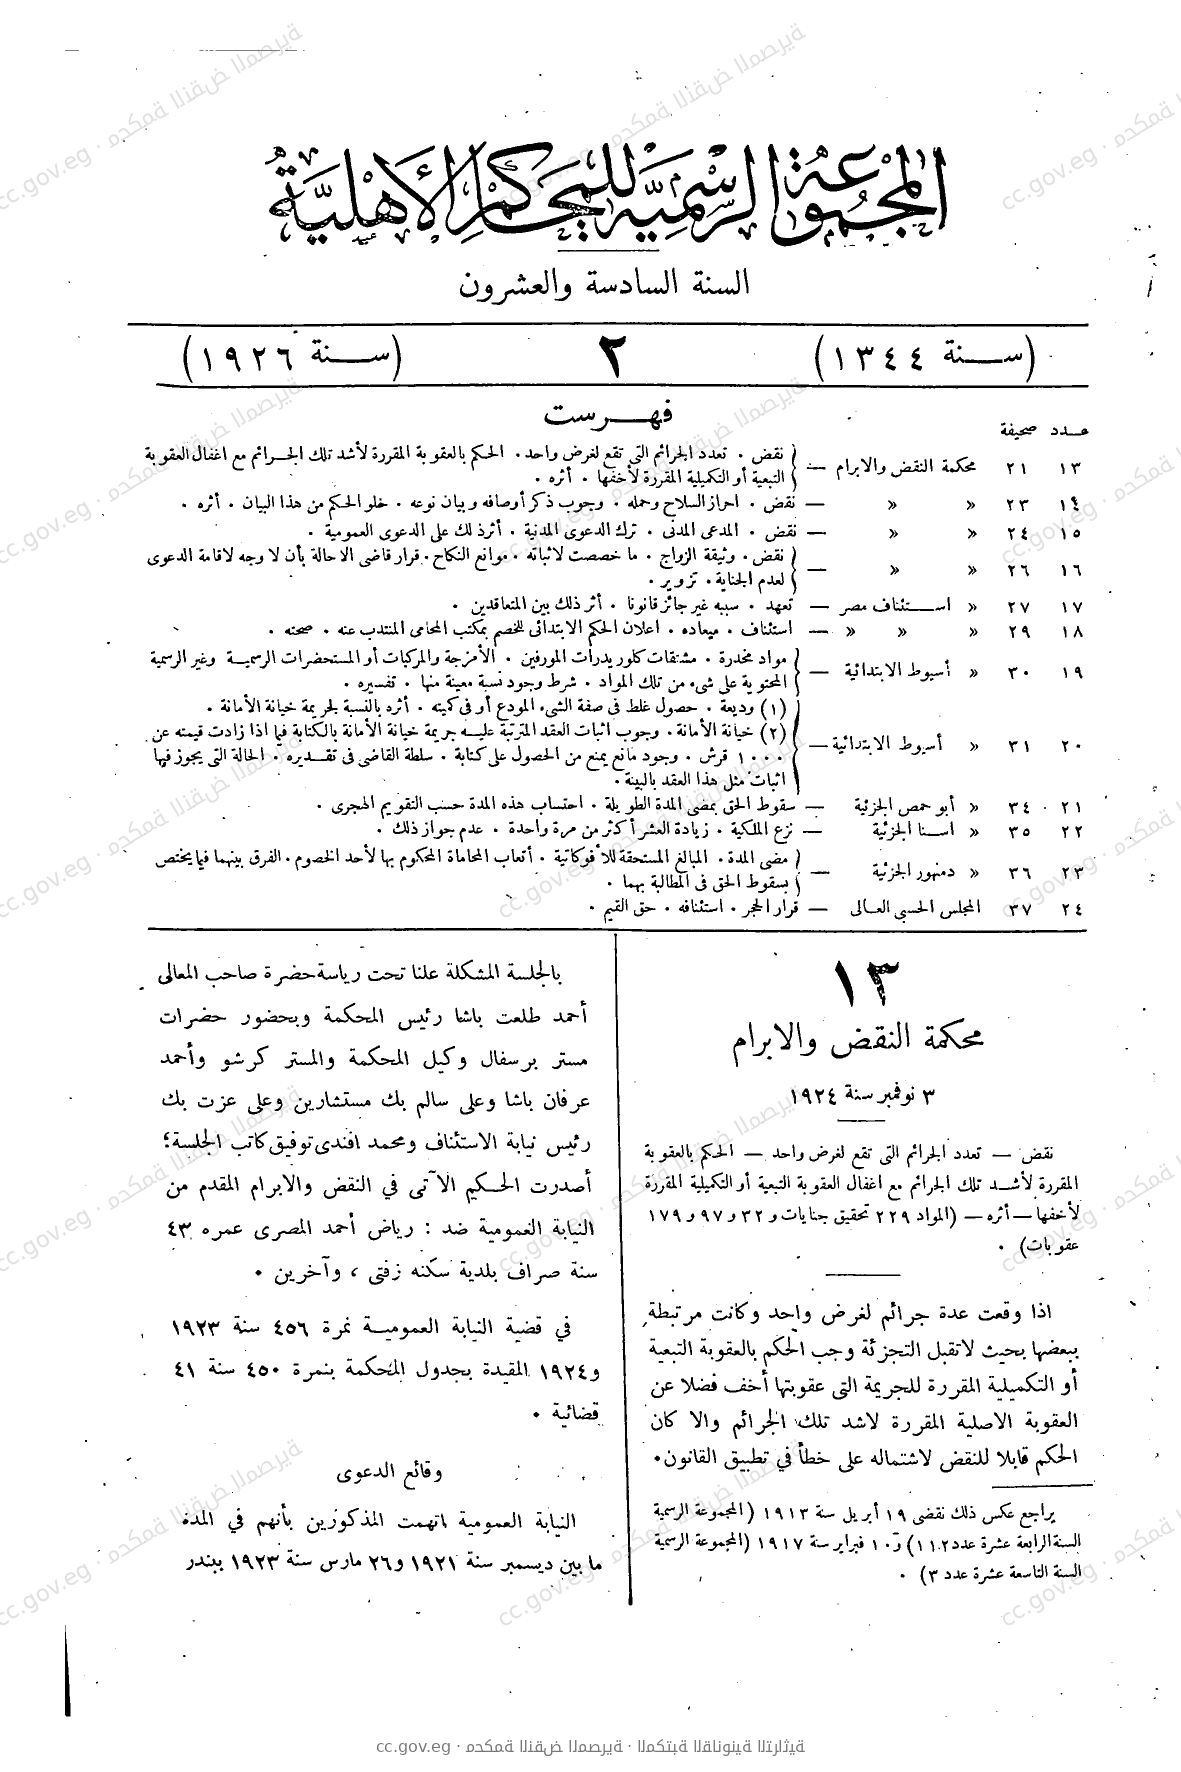 المجموعة الرسمية للمحاكم الأهلية
السنة السادسة والعشرون
(سنة ١٣٤٤) ٢ (سنة ١٩٢٦)
فهرست
عدد صحيفة
١٣ ٢١ محكمة النقض والابرام — نقض . تعدد الجرائم التى تقع لغرض واحد . الحكم بالعقوبة المقررة لأشد تلك الجرائم مع اغفال العقوبة
التبعية أو التكميلية المقررة لأخفها . أثره .
١٤ ٢٣ » » — نقض . احراز السلاح وحمله . وجوب ذكر أوصافه وبيان نوعه . خلو الحكم من هذا البيان . أثره .
١٥ ٢٤ » » — نقض . المدعى المدنى . ترك الدعوى المدنية . أثر ذلك على الدعوى العمومية .
١٦ ٢٦ » » — نقض . وثيقة الزواج . ما خصصت لاثباته . موانع النكاح . قرار قاضى الاحالة بأن لا وجه لاقامة الدعوى
لعدم الجناية . تزوير .
١٧ ٢٧ » استئناف مصر — تعهد . سببه غير جائز قانونا . أثر ذلك بين المتعاقدين .
١٨ ٢٩ » » » — استئناف . ميعاده . اعلان الحكم الابتدائى للخصم بمكتب المحامى المنتدب عنه . صحته .
١٩ ٣٠ » أسيوط الابتدائية — مواد مخدرة . مشتقات كلوريدرات المورفين . الأمزجة والمركبات أو المستحضرات الرسمية وغير الرسمية
المحتوية على شىء من تلك المواد . شرط وجود نسبة معينة منها . تفسيره .
٢٠ ٣١ » أسيوط الابتدائية — (١) وديعة . حصول غلط فى صفة الشىء المودع أو فى كميته . أثره بالنسبة لجريمة خيانة الأمانة .
(٢) خيانة الأمانة . وجوب اثبات العقد المترتبة عليه جريمة خيانة الأمانة بالكتابة فيما اذا زادت قيمته عن
١٠٠٠ قرش . وجود مانع يمنع من الحصول على كتابة . سلطة القاضى فى تقديره . الحالة التى يجوز فيها
اثبات مثل هذا العقد بالبينة .
٢١ ٣٤ » أبو حمص الجزئية — سقوط الحق بمضى المدة الطويلة . احتساب هذه المدة حسب التقويم الهجرى .
٢٢ ٣٥ » اسنا الجزئية — نزع الملكية . زيادة العشر أكثر من مرة واحدة . عدم جواز ذلك .
٢٣ ٣٦ » دمنهور الجزئية — مضى المدة . المبالغ المستحقة للأفوكاتية . أتعاب المحاماة المحكوم بها لأحد الخصوم . الفرق بينهما فيما يختص
بسقوط الحق فى المطالبة بهما .
٢٤ ٣٧ المجلس الحسبى العالى — قرار الحجر . استئنافه . حق القيم .
١٣
محكمة النقض والابرام
٣ نوفمبر سنة ١٩٢٤
نقض — تعدد الجرائم التى تقع لغرض واحد — الحكم بالعقوبة
المقررة لأشد تلك الجرائم مع اغفال العقوبة التبعية أو التكميلية المقررة
لأخفها — أثره — (المواد ٢٢٩ تحقيق جنايات و٣٢ و٩٧ و١٧٩
عقوبات) .
اذا وقعت عدة جرائم لغرض واحد وكانت مرتبطة
ببعضها بحيث لا تقبل التجزئة وجب الحكم بالعقوبة التبعية
أو التكميلية المقررة للجريمة التى عقوبتها أخف فضلا عن
العقوبة الاصلية المقررة لاشد تلك الجرائم والا كان
الحكم قابلا للنقض لاشتماله على خطأ في تطبيق القانون .
يراجع عكس ذلك نقضى ١٩ أبريل سنة ١٩١٣ (المجموعة الرسمية
السنة الرابعة عشرة عدد ١١٢) و١٠ فبراير سنة ١٩١٧ (المجموعة الرسمية
السنة التاسعة عشرة عدد ٣) .
بالجلسة المشكلة علنا تحت رياسة حضرة صاحب المعالى
أحمد طلعت باشا رئيس المحكمة وبحضور حضرات
مستر برسفال وكيل المحكمة والمستر كرشو وأحمد
عرفان باشا وعلى سالم بك مستشارين وعلى عزت بك
رئيس نيابة الاستئناف ومحمد افندى توفيق كاتب الجلسة؛
أصدرت الحكم الآتى في النقض والابرام المقدم من
النيابة العمومية ضد : رياض أحمد المصرى عمره ٤٣
سنة صراف بلدية سكنه زفتى ، وآخرين .
في قضية النيابة العمومية نمرة ٤٥٦ سنة ١٩٢٣
و١٩٢٤ المقيدة بجدول المحكمة بنمرة ٤٥٠ سنة ٤١
قضائية .
وقائع الدعوى
النيابة العمومية اتهمت المذكورين بأنهم في المدة
ما بين ديسمبر سنة ١٩٢١ و٢٦ مارس سنة ١٩٢٣ ببندر
cc.gov.eg · محكمة النقض المصرية · المكتبة القانونية التراثية